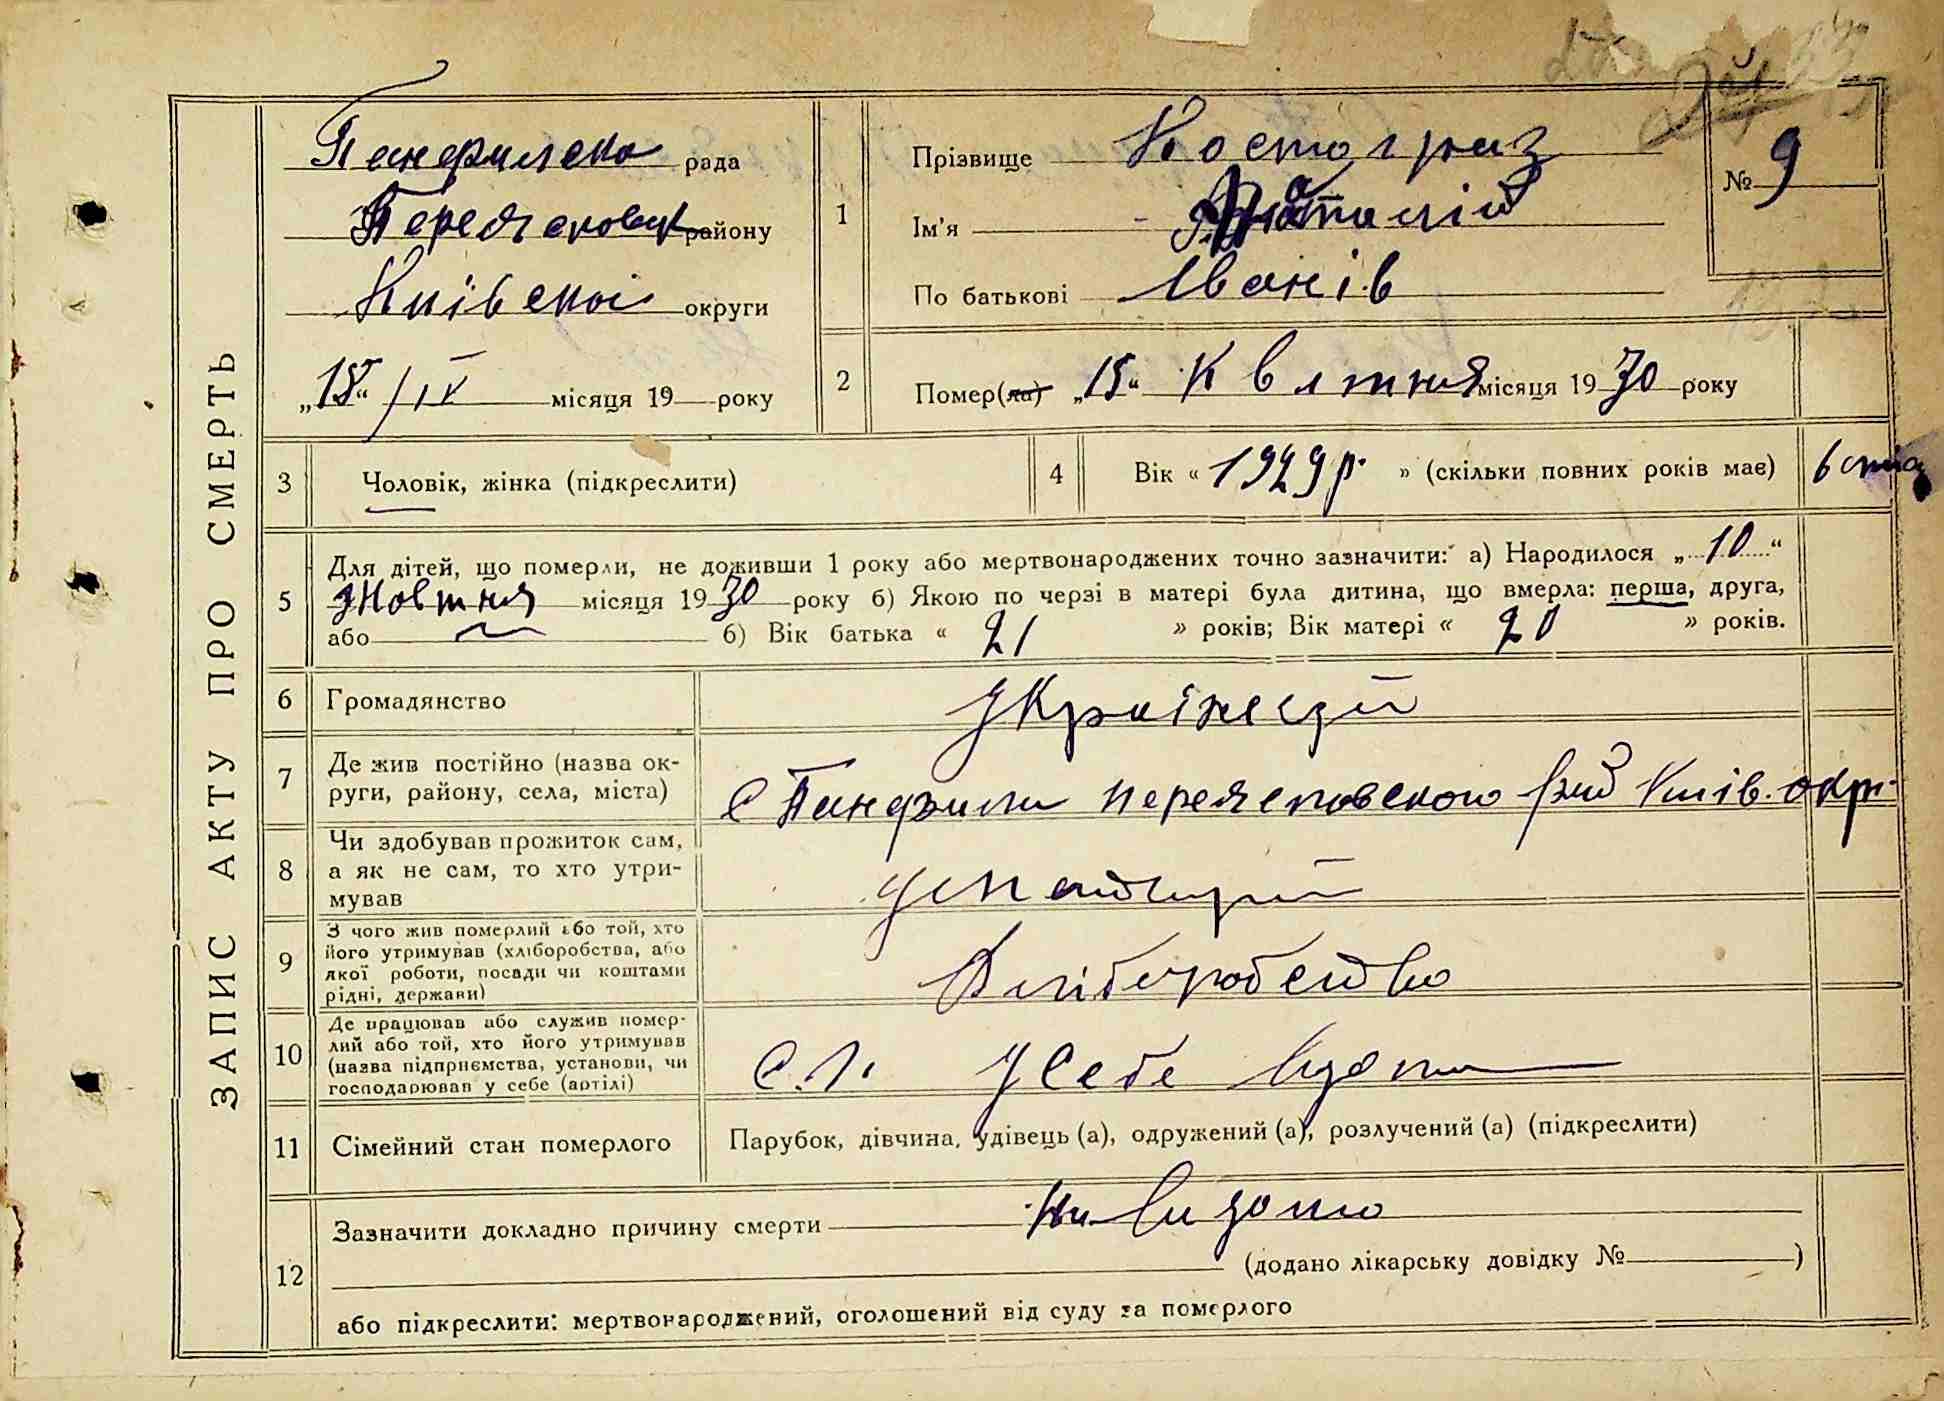 ЗАПИС АКТУ ПРО СМЕРТЬ
Панфилська рада
району
Київської округи
„18“ /IV місяця 19 року
1
Прізвище Костогриз
Ім'я Анатолій
По батькові Іванів
№ 9
2
Помер(ла) „15“ Квітня місяця 1930 року
3
Чоловік, жінка (підкреслити)
4
Вік « 1929 р. » (скільки повних років має)
5
Для дітей, що померли, не доживши 1 року або мертвонароджених точно зазначити: а) Народилося „10“
Жовтня місяця 1930 року б) Якою по черзі в матері була дитина, що вмерла: перша, друга,
або б) Вік батька « 21 » років; Вік матері « 20 » років.
6
Громадянство
7
Де жив постійно (назва ок-
руги, району, села, міста)
с Панфили Окр.
8
Чи здобував прожиток сам,
а як не сам, то хто утри-
мував
9
З чого жив померлий або той, хто
його утримував (хліборобства, або
якої роботи, посади чи коштами
рідні, держави)
Хліборобство
10
Де працював або служив помер-
лий або той, хто його утримував
(назва підприємства, установи, чи
господарював у себе (артілі)
у себе вдома
11
Сімейний стан померлого
Парубок, дівчина, удівець (а), одружений (а), розлучений (а) (підкреслити)
12
Зазначити докладно причину смерти
(додано лікарську довідку № )
або підкреслити: мертвонароджений, оголошений від суду за померлого